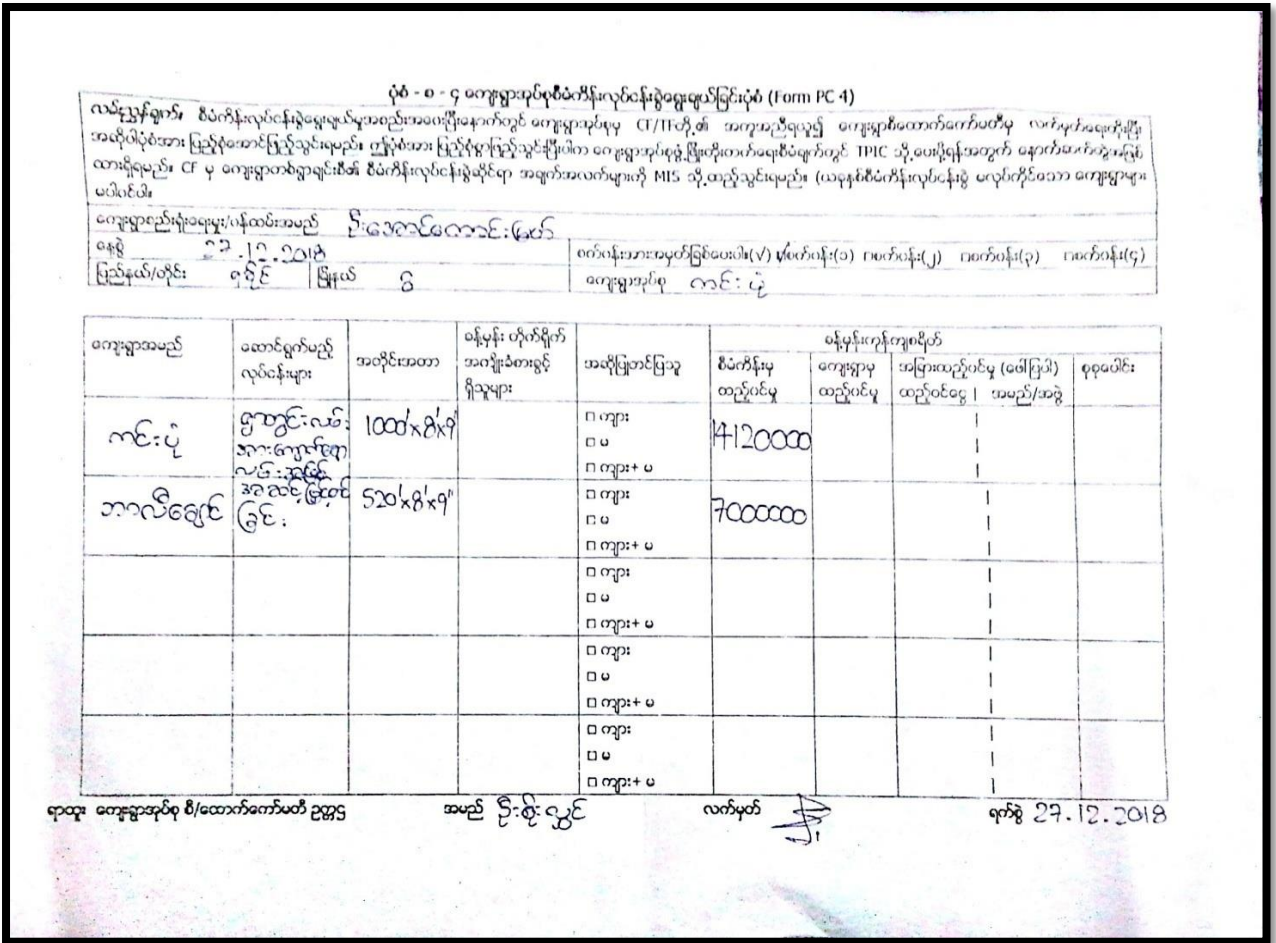 ပုံစံ - စ - ၄ ကျေးရွာအုပ်စုစီမံကိန်းလုပ်ငန်းခွဲရွေးချယ်ခြင်းပုံစံ (Form PC 4)
လမ်းညွှန်ချက်။ စီမံကိန်းလုပ်ငန်းခွဲရွေးချယ်မှုအစည်းအဝေးပြီးနောက်တွင် ကျေးရွာအုပ်စုမှ CF/TFတို့၏ အကူအညီရယူ၍ ကျေးရွာစီထောက်ကော်မတီမှ လက်မှတ်ရေးထိုးပြီး
အဆိုပါပုံစံအား ပြည့်စုံအောင်ဖြည့်သွင်းရမည်။ ဤပုံစံအား ပြည့်စုံစွာဖြည့်သွင်းပြီးပါက ကျေးရွာအုပ်စုဖွံ့ဖြိုးတိုးတက်ရေးစီမံချက်တွင် TPIC သို့ပေးပို့ရန်အတွက် နောက်ဆက်တွဲအဖြစ်
ထားရှိရမည်။ CF မှ ကျေးရွာတစ်ရွာချင်းစီ၏ စီမံကိန်းလုပ်ငန်းခွဲဆိုင်ရာ အချက်အလက်များကို MIS သို့ထည့်သွင်းရမည်။ (ယခုနှစ်စီမံကိန်းလုပ်ငန်းခွဲ မလုပ်ကိုင်သော ကျေးရွာများ
မပါဝင်ပါ။
ကျေးရွာစည်းရုံးရေးမှူး/ဝန်ထမ်းအမည် ဦးအောင်ကောင်းမြတ်
နေ့စွဲ 27.12.2018 စက်ဝန်းအားအမှတ်ခြစ်ပေးပါ။(√) စက်ဝန်း(၁) □စက်ဝန်း(၂) □စက်ဝန်း(၃) □စက်ဝန်း(၄)
ပြည်နယ်/တိုင်း ရခိုင် မြို့နယ် ကျေးရွာအုပ်စု ကင်းပုံ
ခန့်မှန်းကုန်ကျစရိတ်
ကျေးရွာအမည် ဆောင်ရွက်မည့် လုပ်ငန်းများ အတိုင်းအတာ ခန့်မှန်း တိုက်ရိုက် အကျိုးခံစားခွင့် ရှိသူများ အဆိုပြုတင်ပြသူ စီမံကိန်းမှ ထည့်ဝင်မှု ကျေးရွာမှ ထည့်ဝင်မှု အခြားထည့်ဝင်မှု (ဖေါ်ပြပါ) ထည့်ဝင်ငွေ | အမည်/အဖွဲ့ စုစုပေါင်း
ကင်းပုံ 1000'x8'x9" □ ကျား 14120000
□ မ
□ ကျား+ မ
ဘာလီချောင် အဆင့်မြှင့်တင် 520'x8'x9" □ ကျား 7000000
ခြင်း □ မ
□ ကျား+ မ
□ ကျား
□ မ
□ ကျား+ မ
□ ကျား
□ မ
□ ကျား+ မ
□ ကျား
□ မ
□ ကျား+ မ
ရာထူး ကျေးရွာအုပ်စု စီ/ထောက်ကော်မတီ ဥက္ကဋ္ဌ အမည် ဦးစိုးလွှင် လက်မှတ် ရက်စွဲ 27.12.2018